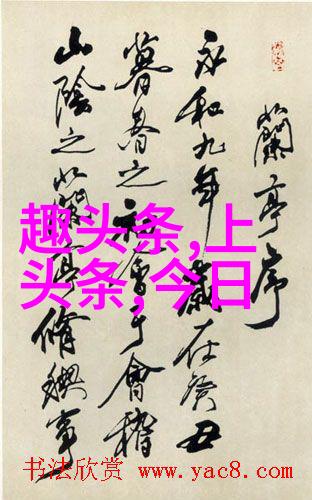 蘭亭序
永和九年歲在癸丑
暮春之初會于會稽
山陰之蘭亭脩禊事
趣头条,上
头条,今日
书法欣赏 www.yac8.com